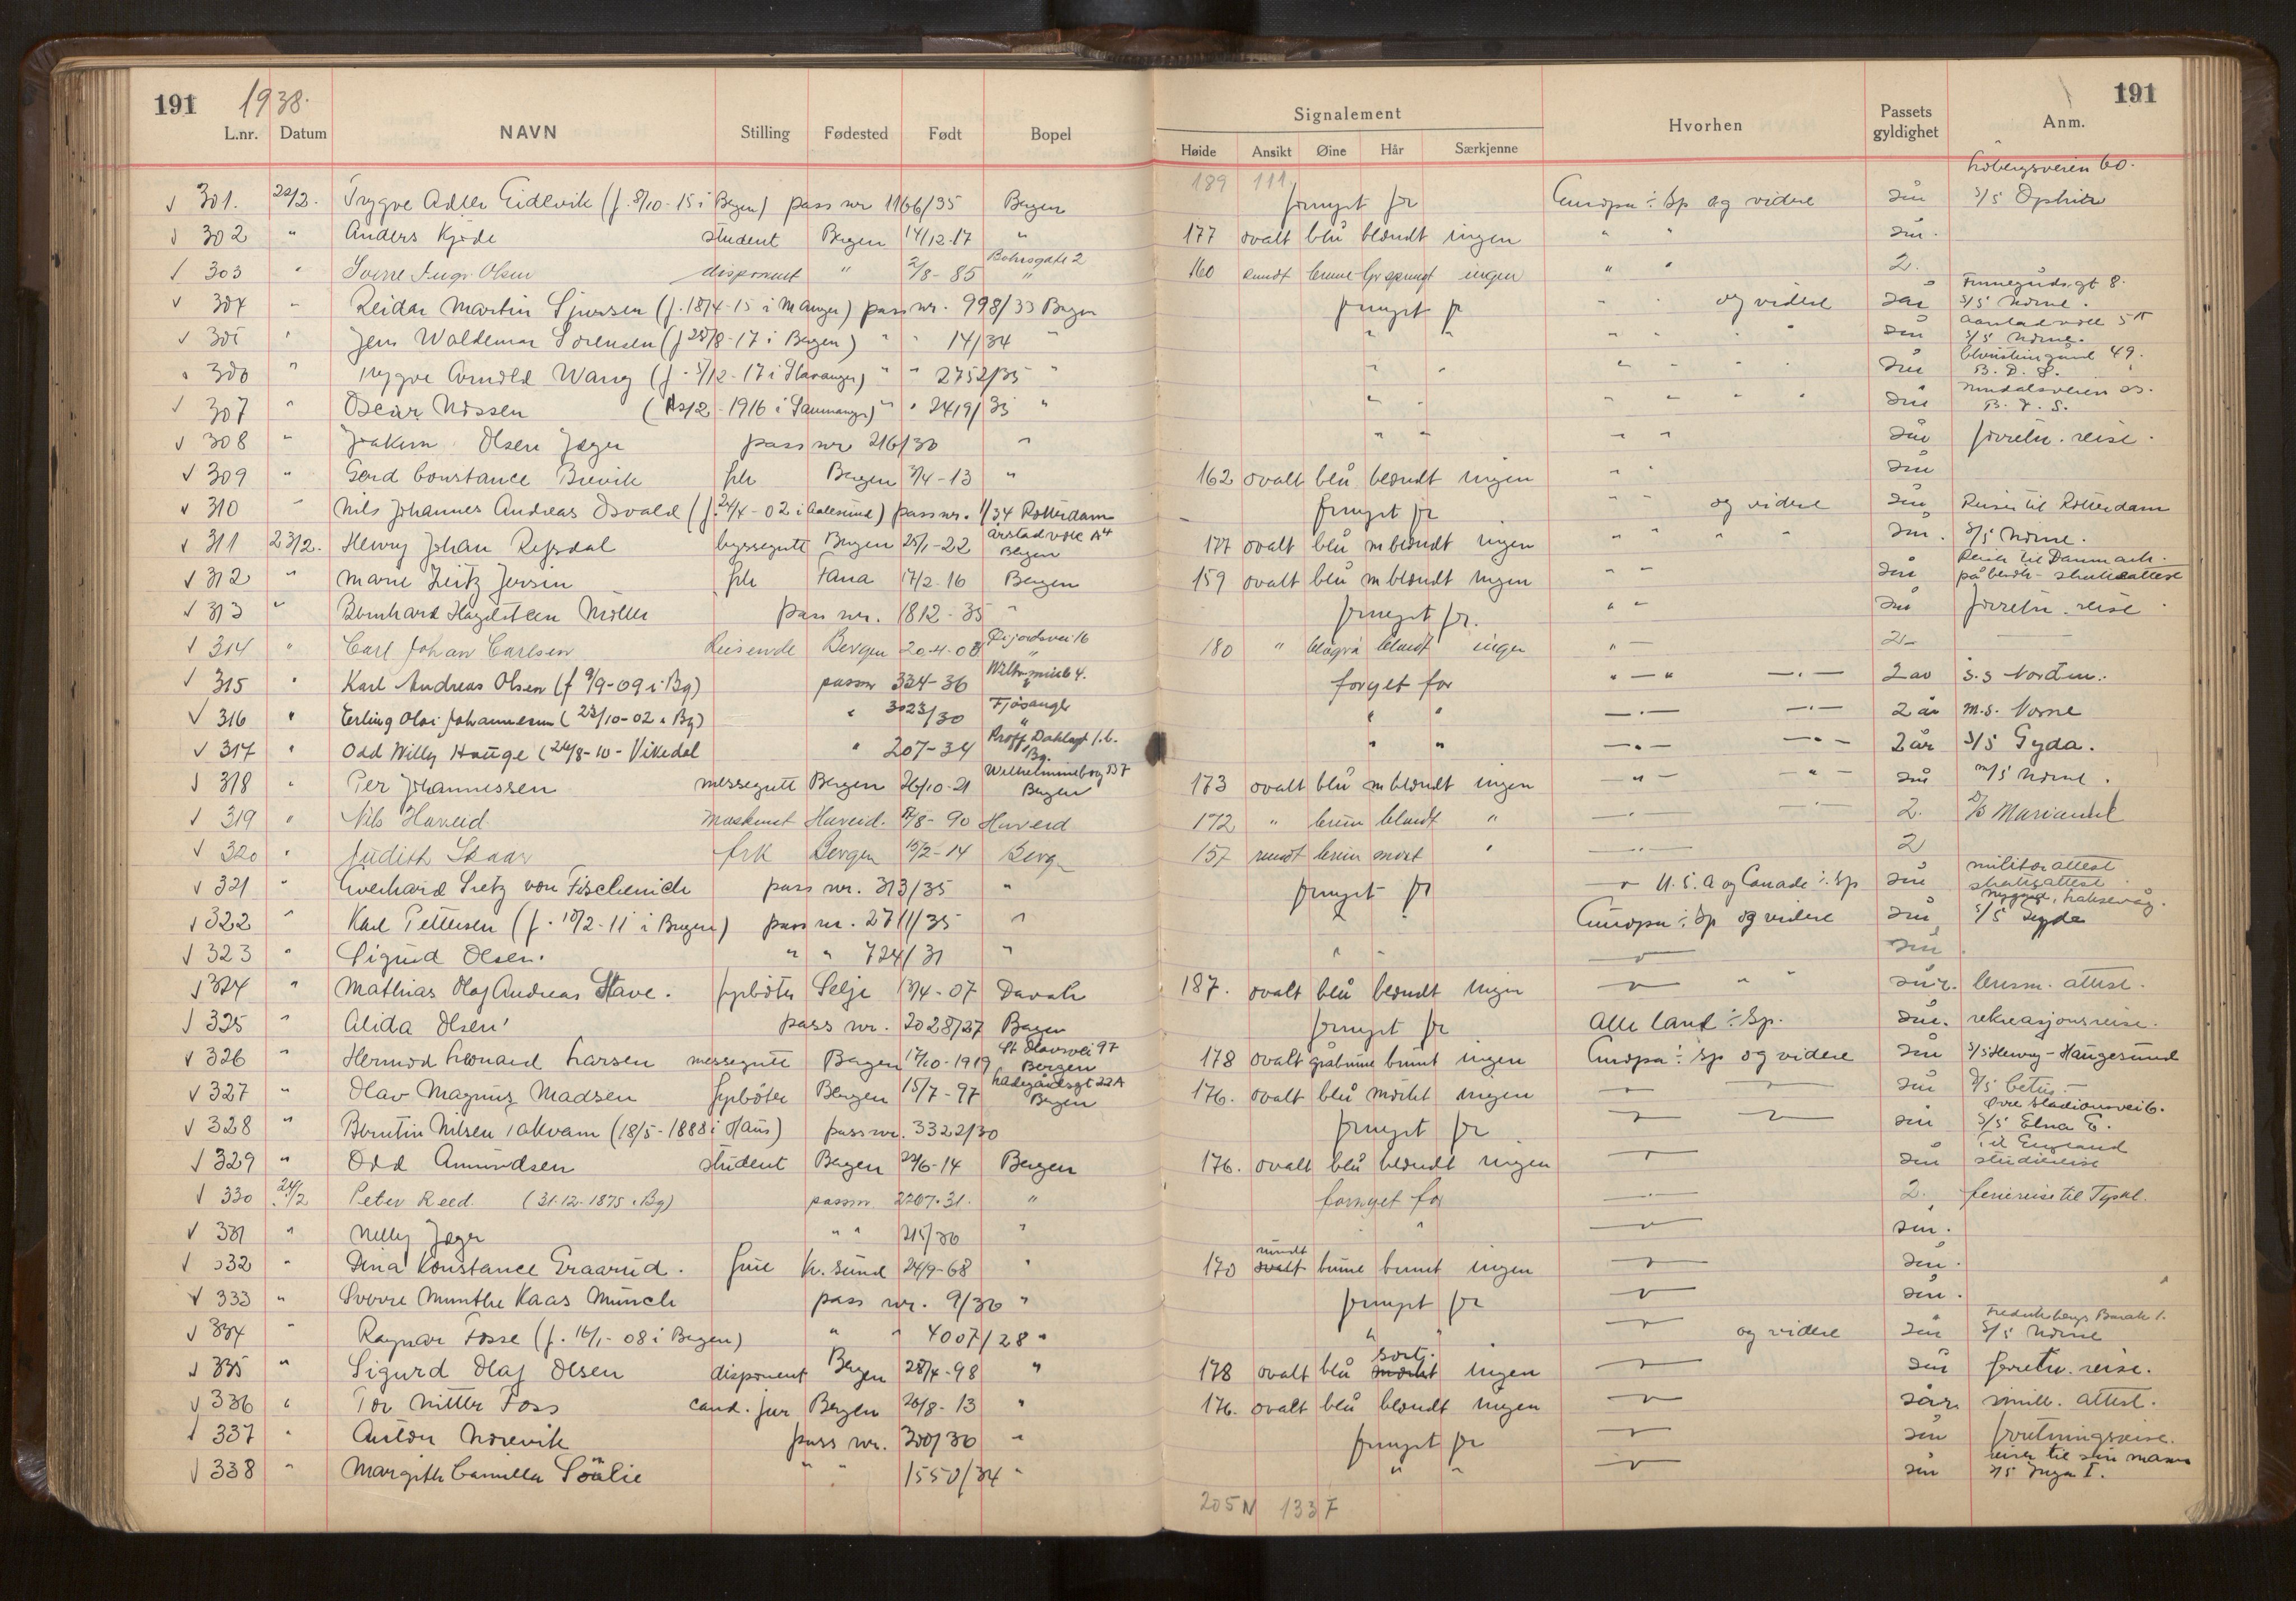 191 1938.
L.nr. Datum NAVN Stilling Fødested Født Bopel
Signalement
Høide Ansikt Øine Hår Særkjenne Hvorhen Passets gyldighet Anm. 191
189 111.
301. 22/2. Trygve Adler Eidevik (f. 8/10-15 i Bergen) pass nr 1166/35 Bergen fornyet for Europa ÷ Sp og videre 2 år s/s Ophir
302 " Anders Kjøde student Bergen 14/12-17 " 177 ovalt blå blondt ingen " " 2 år.
303 " Sverre Olsen disponent " 2/8-85 " 160 rundt brune ingen " " 2.
304 " Reidar Martin Sjursen (f. 18/4-15 i Manger) pass nr. 998/33 Bergen fornyet for " " og videre 2 år s/s Norne.
305 " Jens Waldemar Sørensen (f 25/8-17 i Bergen) " " 14/34 " " " " " " " 2 år s/s Norne.
306 " Trygve Arnold Wang (f. 5/12-17 i Stavanger) " " 2752/35 " " " " " " " 2 år B. D. S.
307 " Oscar Nissen 1916 i " " 2419/35 " " " " " " " 2 år B. D. S.
308 " Joakim Olsen Jæger pass nr 216/30 " " " " " 2 år forretn. reise.
309 " Gerd Constance Brevik frk Bergen 3/4-13 " 162 ovalt blå blondt ingen " " 2 år
310 " Nils Johannes Andreas Osvald (f. 24/4-02 i Aalesund) pass nr. 1/34 Rotterdam fornyet for " " og videre 2 år Reiser til Rotterdam
311 23/2. Henry Johan Refsdal byssegutt Bergen 25/1-22 Bergen 177 ovalt blå m blondt ingen " " " " 2 år. s/s Norne.
312 " Marie Jersin frk Fana 17/2-16 Bergen 159 ovalt blå m blondt ingen " " 2 år Reise til Danmark.
313 " Bernhard Møller pass nr. 1812-35 " fornyet for. " " 2 år forretn. reise.
314 " Carl Johan Carlsen Reisende Bergen 20-4-08 " 180 " blågrå blondt ingen " — 2 —
315 " Karl Andreas Olsen (f 9/9-09 i Bg) passnr 324-36 " fornyet for " — " — . — 2 år s.s Norden.
316 " Erling Olai Johannesen (23/10-02 i Bg) " 3023/30 Fjøsanger " " " — . — — . — 2 år m.s. Norne
317 " Odd Willy Hauge (24/8-10 - Vikedal " 207-34 Bg. " " — . — — . — 2 år s/s Gyda.
318 " Per Johannessen messegutt Bergen 26/10-21 Bergen 173 ovalt blå m blondt ingen — " — — " — 2 år m/s Norne.
319 " Nils Haveid Maskinist Haveid. 8-90 Haveid 172 " brun blondt " — . — — . — 2. Mariandel
320 " Judith Skaar frk Bergen 15/2-14 Berg 157 rundt brun mørkt " — . — 2
321 " Everhard von Fischenich pass nr. 313/35 " fornyet for — " — U.S.A og Canada ÷ Sp 2 år militær attest
322 " Karl Pettersen (f. 10/2-11 i Bergen) pass nr. 2711/35 " " " Europa ÷ Sp og videre 2 år s/s Gyda
323 " Sigurd Olsen. " " 724/31 " " " — " — 2 år.
324 " Mathias Olaf Andreas Stave. fyrbøter Selje 13/4-07 Davik 187. ovalt blå blondt ingen — " — " " 2 år. attest.
325 " Alida Olsen pass nr. 2028/27 Bergen fornyet for Alle land ÷ Sp. 2 år. rekreasjonsreise.
326 " Hermod Leonard Larsen messegutt Bergen 17/10-1919 St Olavsvei 97 Bergen 178 ovalt gråbrune brunt ingen Europa ÷ Sp og videre 2 år s/s Henry - Haugesund
327 " Olav Magnus Madsen fyrbøter Bergen 15/7-97 Ladegårdsgt 22A Bergen 176. ovalt blå mørkt ingen — " — — " — 2 år s/s
328 " Berntin Nilsen Takvam (18/5-1888 i Haus) pass nr. 3322/30 fornyet for — " — — " — 2 år s/s Elna E.
329 " Odd Amundsen student Bergen 23/6-14 Bergen 176. ovalt blå blondt ingen — " — 2 år Til England studiereise
330 24/2 Peter Reed. (31-12-1875 i Bg) passnr 2207-31. " fornyet for — . — 2. feriereise til Tyskl.
331 " Nelly Jæger " " 215/30 " " — " — 2 år.
332 " Dina Konstance Eraarud. frue Kr. sund 24/9-68 " 170 rundt ovalt brune brunt ingen — " — 2 år.
333 " Sverre Munthe Kaas Münch pass nr. 9/30 " fornyet for — " — 2 år.
334 " Ragnar Fosse (f. 16/1-08 i Bergen) " " 4007/28 " " " — " — og videre 2 år s/s Norne
335 " Sigurd Olaf Olsen disponent Bergen 28/4-98 " 178 ovalt blå sort. mørkt ingen — " — 2 år forretn. reise.
336 " Tor Nitter Foss cand. jur Bergen 26/8-13 " 176. ovalt blå blondt ingen — " — 2 år. attest.
337 " Anton Norevik pass nr. 300/30 " fornyet for — " — 2 år forretningsreise.
338 " Margith Camilla Sölie " " 1550/34 " " " — " — 2 år reiser til sin mann s/s Inga I.
205 N 133 F